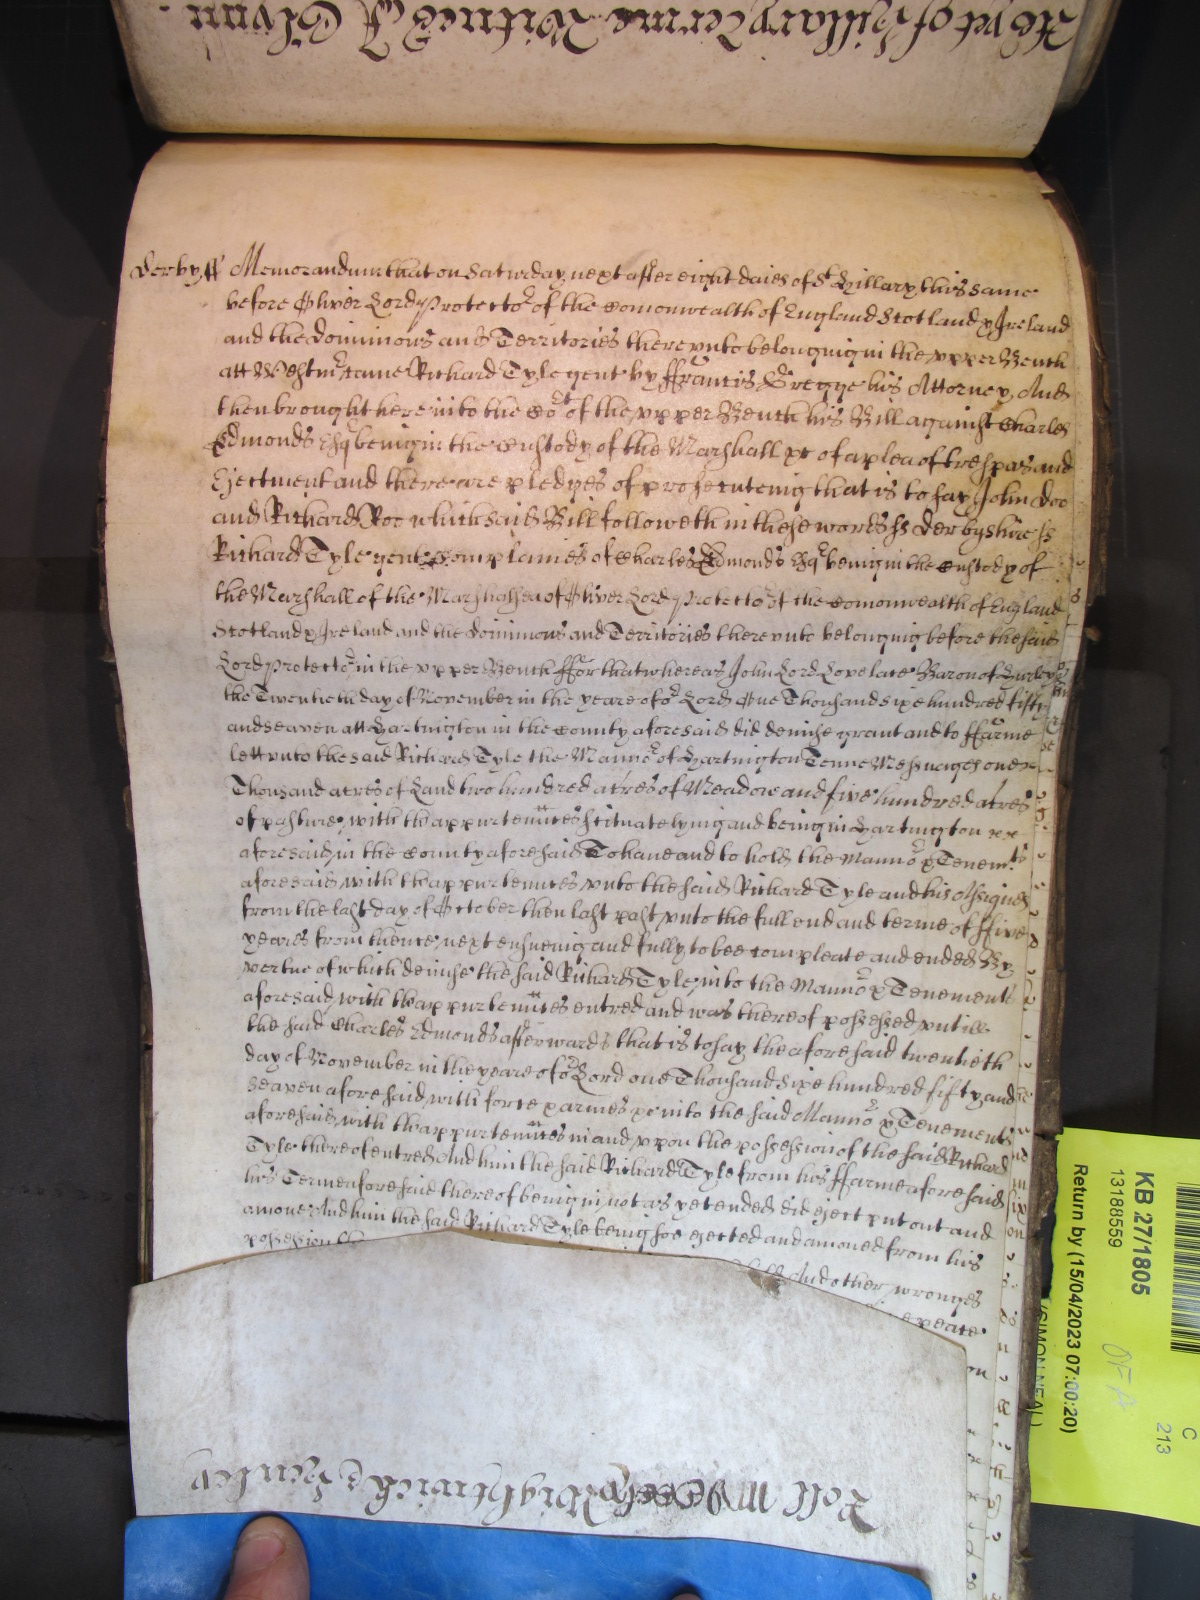 yet of Hillary Terme Witnes J Glynn.
Derby ss Memorandum that on Saturday next after eight daies of St Hillary this same
before Oliver Lord Protector of the Comonwealth of England Scotland & Ireland
and the Dominions and Territories therevnto belonging in the vpper Bench
att Westmr came Richard Tyle gent by ffrancis Gregge his Attorney And
then brought here into the Cort of the vpper Bench his Bill against Charles
Edmonds Esqr being in the Custody of the Marshall &c of a plea of trespas and
Ejectment and there are pledges of prosecuteing that is to say John Doo
and Richard Roo which said Bill followeth in these words ss Derbyshire ss
Richard Tyle gent Complaines of Charles Edmonds Esqr being in the Custody of
the Marshall of the Marshalsea of Oliver Lord Protector of the Comonwealth of England
Scotland & Ireland and the Dominions and Territories therevnto belonging before the said
Lord Protector in the vpper Bench ffor that whereas John Lord Lovelace Baron of Hurley
the Twentieth day of November in the yeare of or Lord One Thousand sixe hundred fifty
and seaven att Hartington in the County aforesaid did demise grant and to ffarme
lett vnto the said Richard Tyle the Mannor of Hartington Tenne Messuages one
Thousand acres of Land two hundred acres of Meadow and five hundred acres
of pasture with thappurtennces scituate lying and being in Hartington
aforesaid in the County aforesaid To haue and to hold the Mannor & Tenemts
aforesaid with thappurtennces vnto the said Richard Tyle and his Assignes
from the last day of October then last past vnto the full end and terme of ffive
yeares from thence next ensueing and fully to bee compleate and ended By
vertue of which demise the said Richard Tyle into the Mannor & Tenements
aforesaid with thappurtennces entred and was thereof possessed vntill
the said Charles Edmonds afterwards that is to say the aforesaid twentieth
day of November in the yeare of or Lord one Thousand sixe hundred fifty and
seaven aforesaid with force & armes &c into the said Mannor & Tenements
aforesaid with thappurtennces in and vpon the possession of the said Richard
Tyle thereof entred And him the said Richard Tyle from his ffarme aforesaid
his Terme aforesaid thereof being in not as yet ended did eject put out and
amove And him the said Richard Tyle being soe ejected and amoved from his
possession
And other wronges
Roll Wightwick & Henley
KB 27/1805
13188559
Return by (15/04/2023 07:00:20)
(SIMON NEAL)
C
213